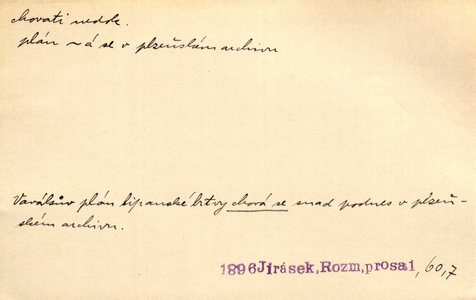 chovati nedok.
plán ~ á se v plzeňském archivu
Vavákův plán lipanské bitvy chová se snad podnes v plzeň-
ském archivu.
1896 Jirásek, Rozm, prosa1, 60,7